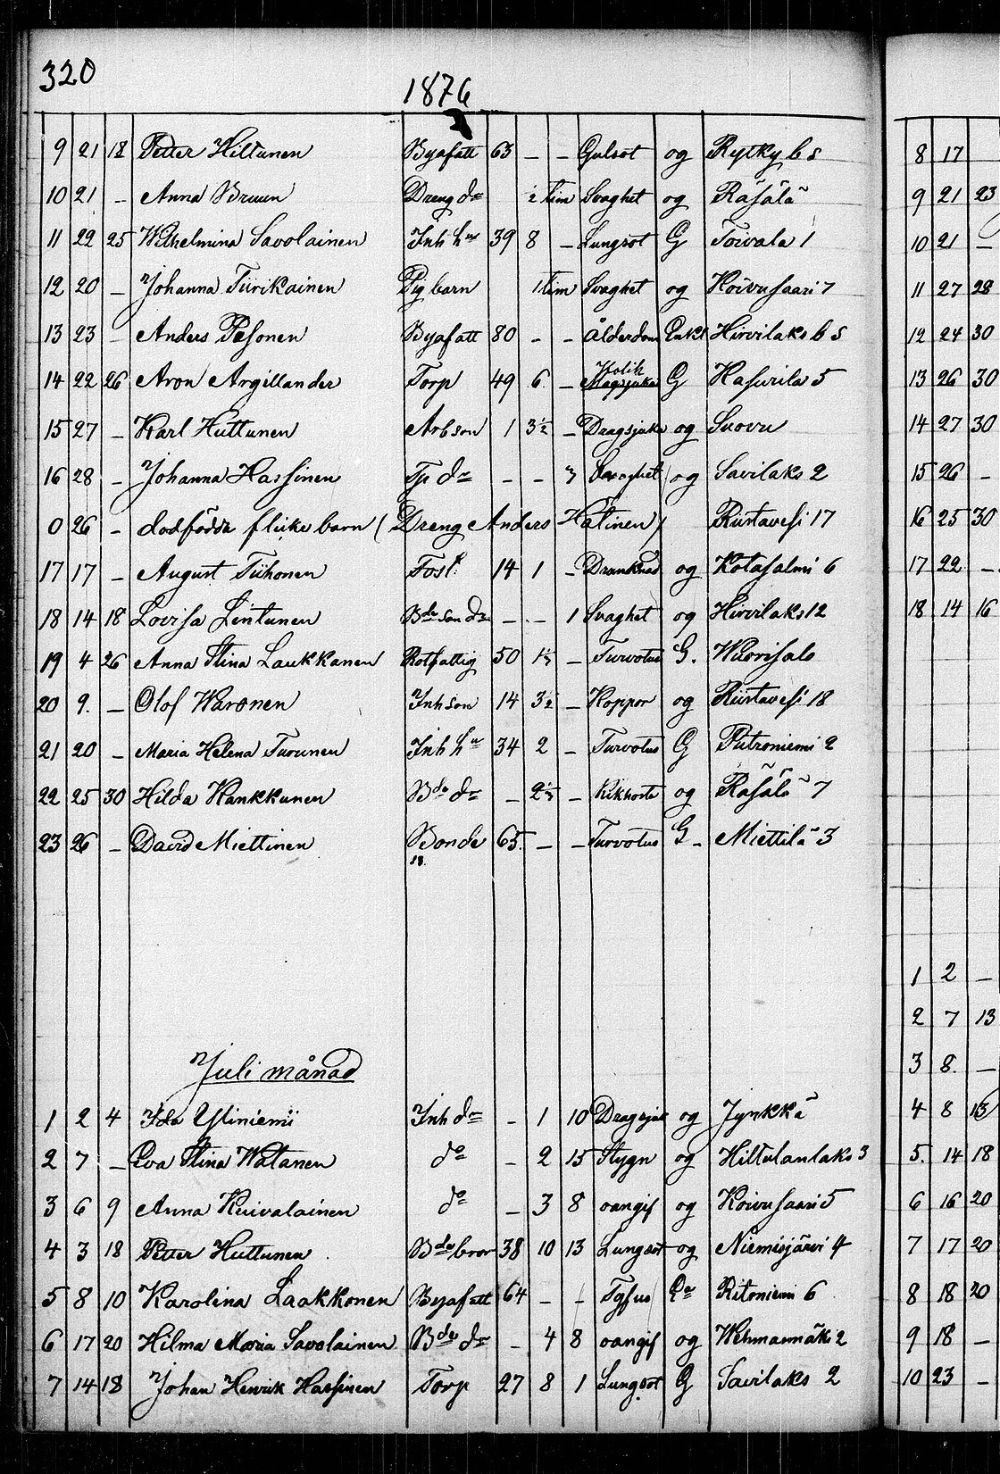 320
1876
9 21 18 Petter Hiltunen Byafatt 63 - - Gulsot og Rytky 6 8
10 21 - Anna Bruun Dreng dr 2 tim Svaghet og Räsälä
11 22 25 Wilhelmina Savolainen Inh hu 39 8 - Lungsot G Toivala 1
12 20 - Johanna Tiirikainen Pig barn 1 tim Svaghet og Koivusaari 7
13 23 - Anders Pesonen Byafatt 80 - - Ålderdom Enkl Hirvilaks 6 5
14 22 26 Aron Argillander Torp 49 6 - Kolik G Hasurila 5
15 27 - Karl Huttunen Arb son 1 3½ - Dragsjuka og Suovu
16 28 - Johanna Hassinen Tp dr - - 7 Svaghet og Savilaks 2
0 26 - dödfödde flicke barn (Dreng Anders Hätinen) Riistavesi 17
17 17 - August Tiihonen Fost. 14 1 - Drunknad og Kotasalmi 6
18 14 18 Lovisa Lintunen Bde son dr - - 1 Svaghet og Hirvilaks 12
19 4 26 Anna Stina Laukkanen Rotfattig 50 1½ - Turvotus G. Wuorisalo
20 9. - Olof Waronen Inh son 14 3½ - Koppor og Riistavesi 18
21 20 - Maria Helena Turunen Inh hu 34 2 - Turvotus G Putroniemi 2
22 25 30 Hilda Kankkunen Bde dr - 2½ - Kikhosta og Räsälä 7
23 26 - David Miettinen Bonde 65. - - Turvotus G - Miettilä 3
Juli månad
1 2 4 Ida Yliniemi Inh dr - 1 10 Dragsjuk og Jynkkä
2 7 - Eva Stina Watanen do - 2 15 Stygn og Hiltulanlaks 3
3 6 9 Anna Kuivalainen do - 3 8 oangif og Koivusaari 5
4 3 18 Petter Huttunen Bde bror 38 10 13 Lungsot og Niemisjärvi 4
5 8 10 Karolina Laakkonen Byafatt 64 - - Tyfus Ea Ritoniemi 6
6 17 20 Hilma Maria Savolainen Bde dr - 4 8 oangif og Wehmasmäki 2
7 14 18 Johan Henrik Hassinen Torp 27 8 1 Lungsot G Savilaks 2
8 17
9 21 23
10 21 -
11 27 28
12 24 30
13 26 30
14 27 30
15 26 -
16 25 30
17 22 -
18 14 16
1 2 -
2 7 13
3 8. -
4 8 13
5. 14 18
6 16 20
7 17 20
8 18 20
9 18 -
10 23 -